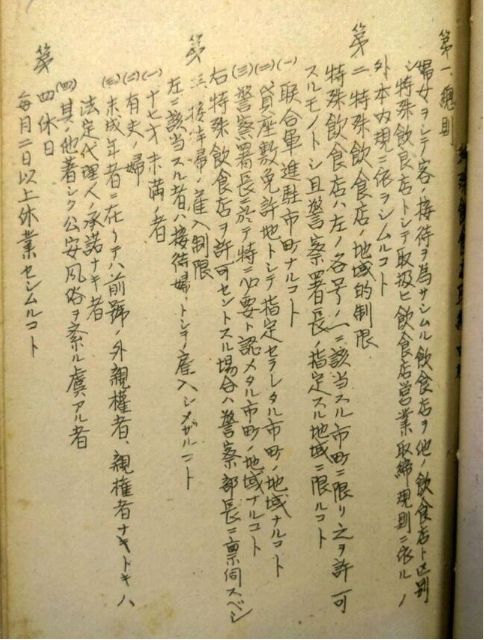 第一 總則
婦女ヲシテ客ノ接待ヲ為サシムル飲食店ヲ他ノ飲食店ト区別
シ特殊飲食店トシテ取扱ヒ飲食店営業取締規則ニ依ルノ
外本内規ニ依ラシムルコト
第二 特殊飲食店ノ地域的制限
特殊飲食店ハ左ノ各号ノ一ニ該当スル市町ニ限リ之ヲ許可
スルモノトシ且警察署長ノ指定スル地域ニ限ルコト
(一) 聯合軍ノ進駐市町ナルコト
(二) 貸座敷免許地トシテ指定セラレタル市町ノ地域ナルコト
(三) 警察署長ニ於テ特ニ必要ト認メタル市町ノ地域ナルコト
右特殊飲食店ヲ許可セントスル場合ハ警察部長ニ禀伺スベシ
第三 接待婦ノ雇入制限
左ニ該当スル者ハ接待婦トシテ雇入シメザルコト
(一) 十七才未満ノ者
(二) 有夫ノ婦
(三) 未成年者ニ在リテハ前號ノ外親権者、親権者ナキトキハ
法定代理人ノ承諾ナキ者
(四) 其ノ他著シク公安風俗ヲ紊ル虞アル者
第四 休日
毎月二日以上休業セシムルコト